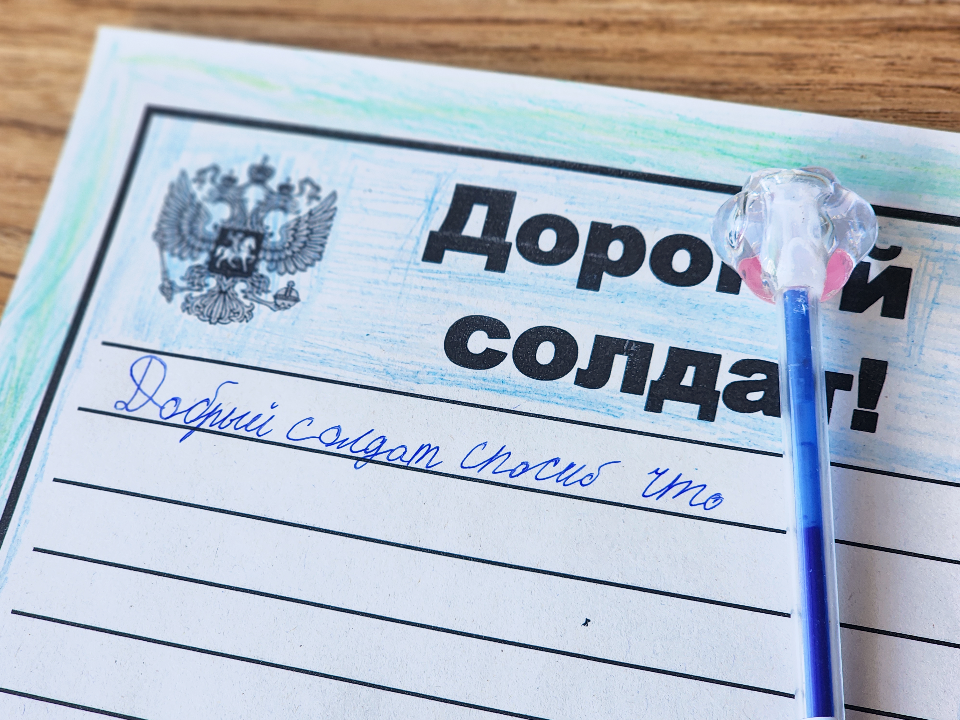 Дорогой
солдат!
Добрый солдат спосиб что